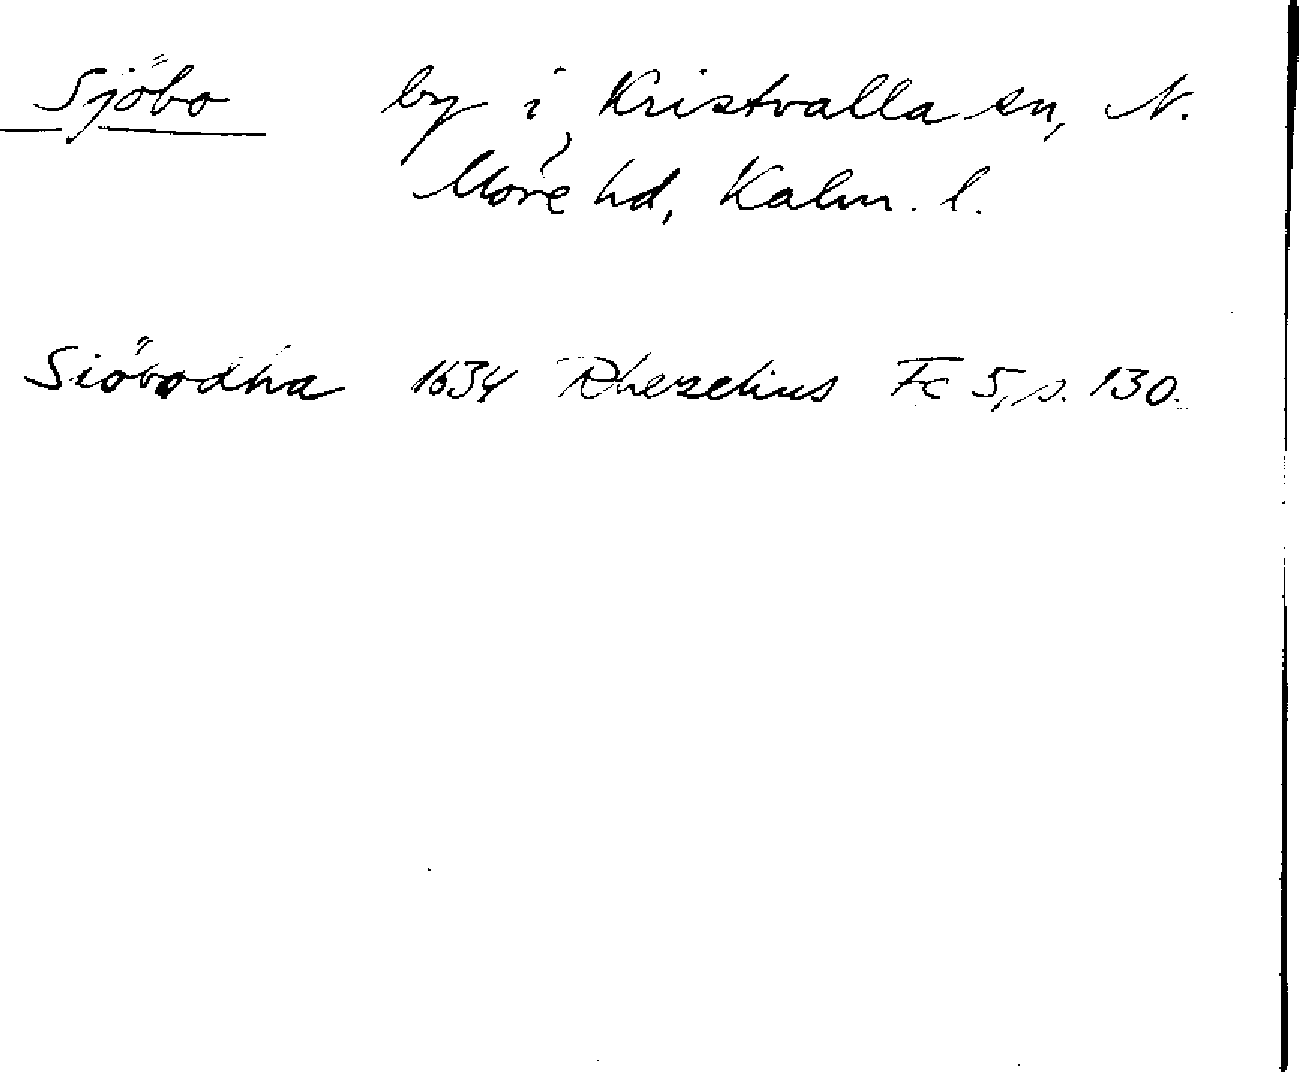 Sjöbo by i Kristvalla sn, N.
Möre hd, Kalm. l.
Siöbodha 1634 Rhezelius Fc 5, s. 130.